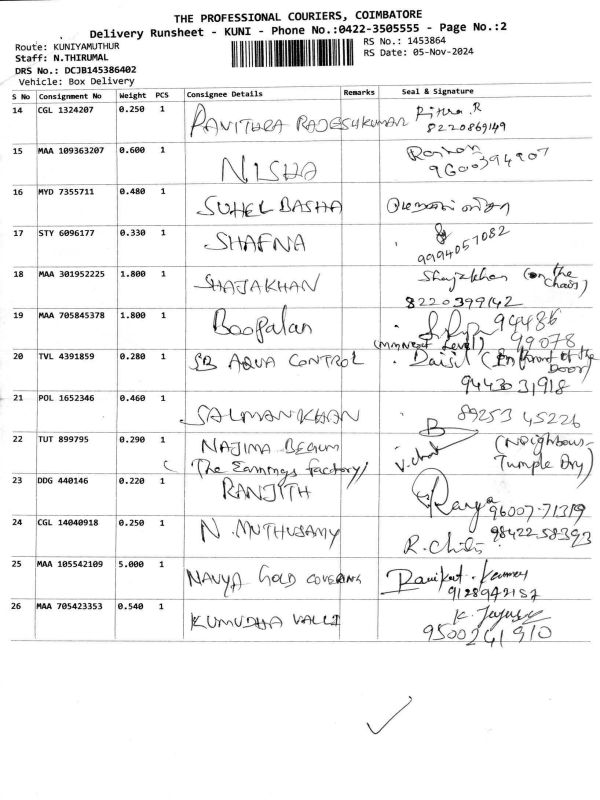 THE PROFESSIONAL COURIERS, COIMBATORE
Delivery Runsheet - KUNI - Phone No.:0422-3505555 - Page No.:2
Route: KUNIYAMUTHUR
RS No.: 1453864
Staff: N.THIRUMAL
RS Date: 05-Nov-2024
DRS No.: DCJB145386402
Vehicle: Box Delivery
S No Consignment No Weight PCS Consignee Details Remarks Seal & Signature
14 CGL 1324207 0.250 1 PAVITHRA RAJESHKUMAR
8220869149
15 MAA 109363207 0.600 1 NISHA
9600394907
16 MYD 7355711 0.480 1 SUHEL BASHA
17 STY 6096177 0.330 1 SHAFNA
9994057082
18 MAA 301952225 1.800 1 SHAJAKHAN Shajakhan (on the
chair)
8220399142
19 MAA 705845378 1.800 1 Boopalan 99486
99078
20 TVL 4391859 0.280 1 SB AQUA CONTROL (Infront of the
Door)
9443031918
21 POL 1652346 0.460 1 SALMANKHAN 89253 45226
22 TUT 899795 0.290 1 NAJIMA BEGUM (Neighbour-
(The Earnings factory) Tumple Dry)
23 DDG 440146 0.220 1 RANJITH
96007-71319
24 CGL 14040918 0.250 1 N. MUTHUSAMY 98422-58393
25 MAA 105542109 5.000 1 NAVYA GOLD COVERING
9128942157
26 MAA 705423353 0.540 1 KUMUDHA VALLI
9500241910